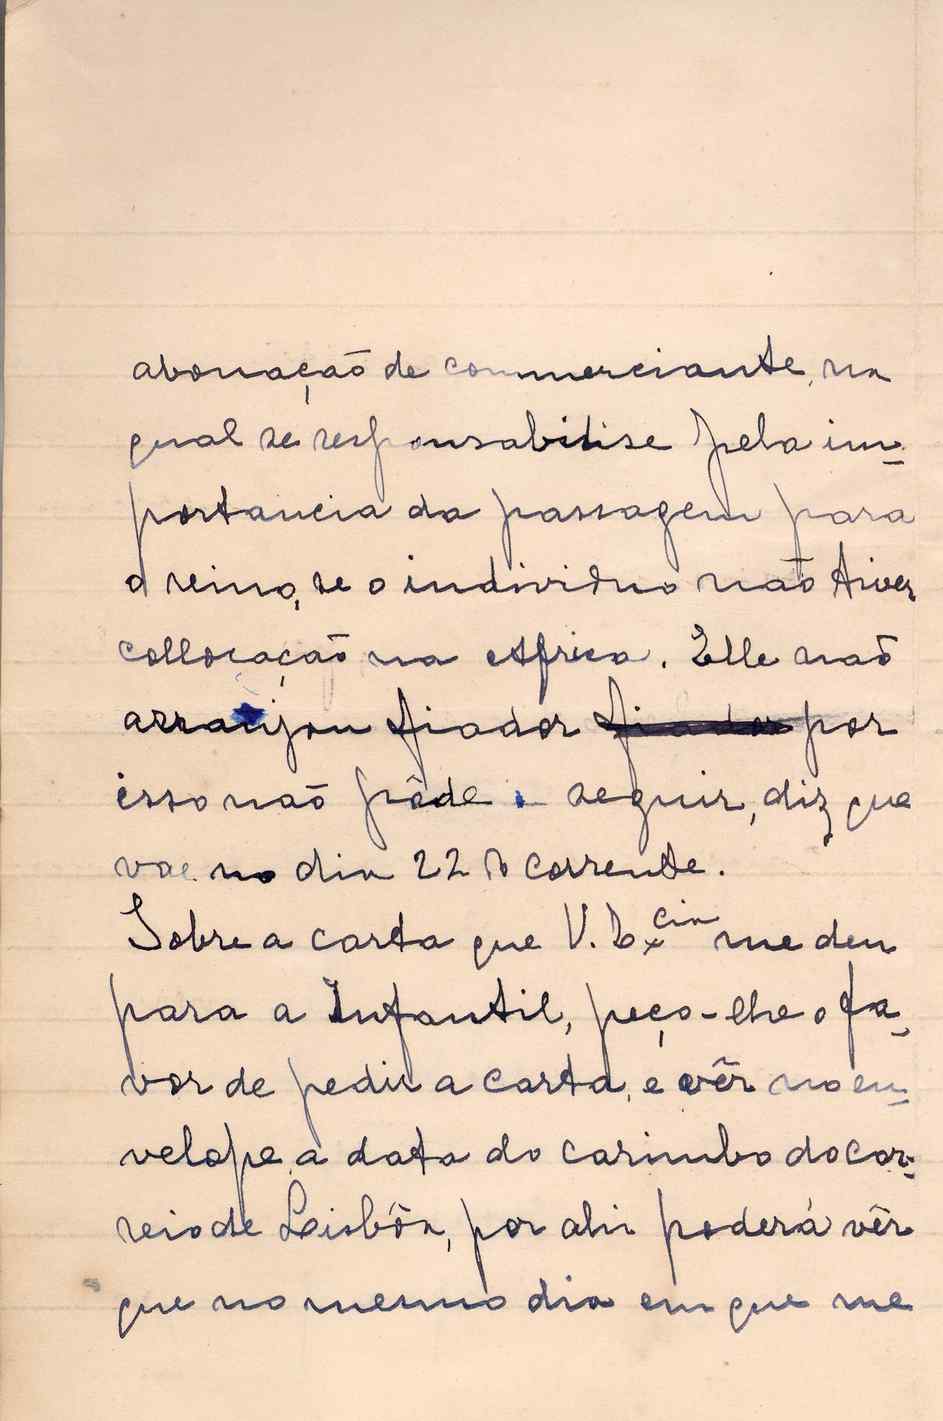 abonação de commerciante, na
qual se responsabilise pela im-
portancia da passagem para
o reino, se o individuo não tiver
collocação na Africa. Elle não
arranjou fiador fiador por
isso não pôde seguir, diz que
vae no dia 22 do corrente.
Sobre a carta que V. Excia me deu
para a Infantil, peço-lhe o fa-
vor de pedir a carta, e vêr no en-
velope a data do carimbo do cor-
reio de Lisbôa, por ahi poderá vêr
que no mesmo dia em que me